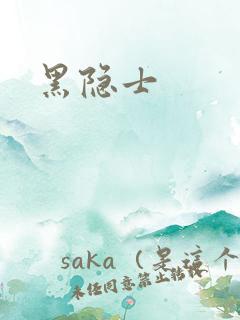 黑隐士
saka（是这个
未经同意禁止转载